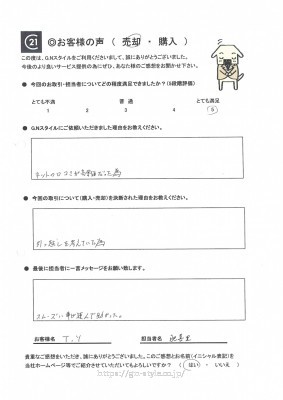 C21 ◎お客様の声 ( 売却 ・ 購入 )
この度は、G.Nスタイルをご利用くださいまして、誠にありがとうございました。
今後のより良いサービス提供の為にぜひ、あなた様のご感想をお聞かせ下さい。
● 今回のお取引・担当者についてどの程度満足できましたか?(5段階評価)
とても不満 普通 とても満足
1 2 3 4 5
● G.Nスタイルにご依頼いただきました理由をお教えください。
ネットの口コミが高評価だった為
● 今回の取引について(購入・売却)を決断された理由をお教えください。
引っ越しを考えていた為
● 最後に担当者に一言メッセージをお願い致します。
スムーズに事が進んで良かった。
お客様名 T.ツ 担当者名
貴重なご感想をいただき、誠にありがとうございました。このご感想とお名前(イニシャル表記)を
当社ホームページ等でご紹介させていただいてもよろしいですか? ( はい ・ いいえ )
https://gn-style.co.jp/